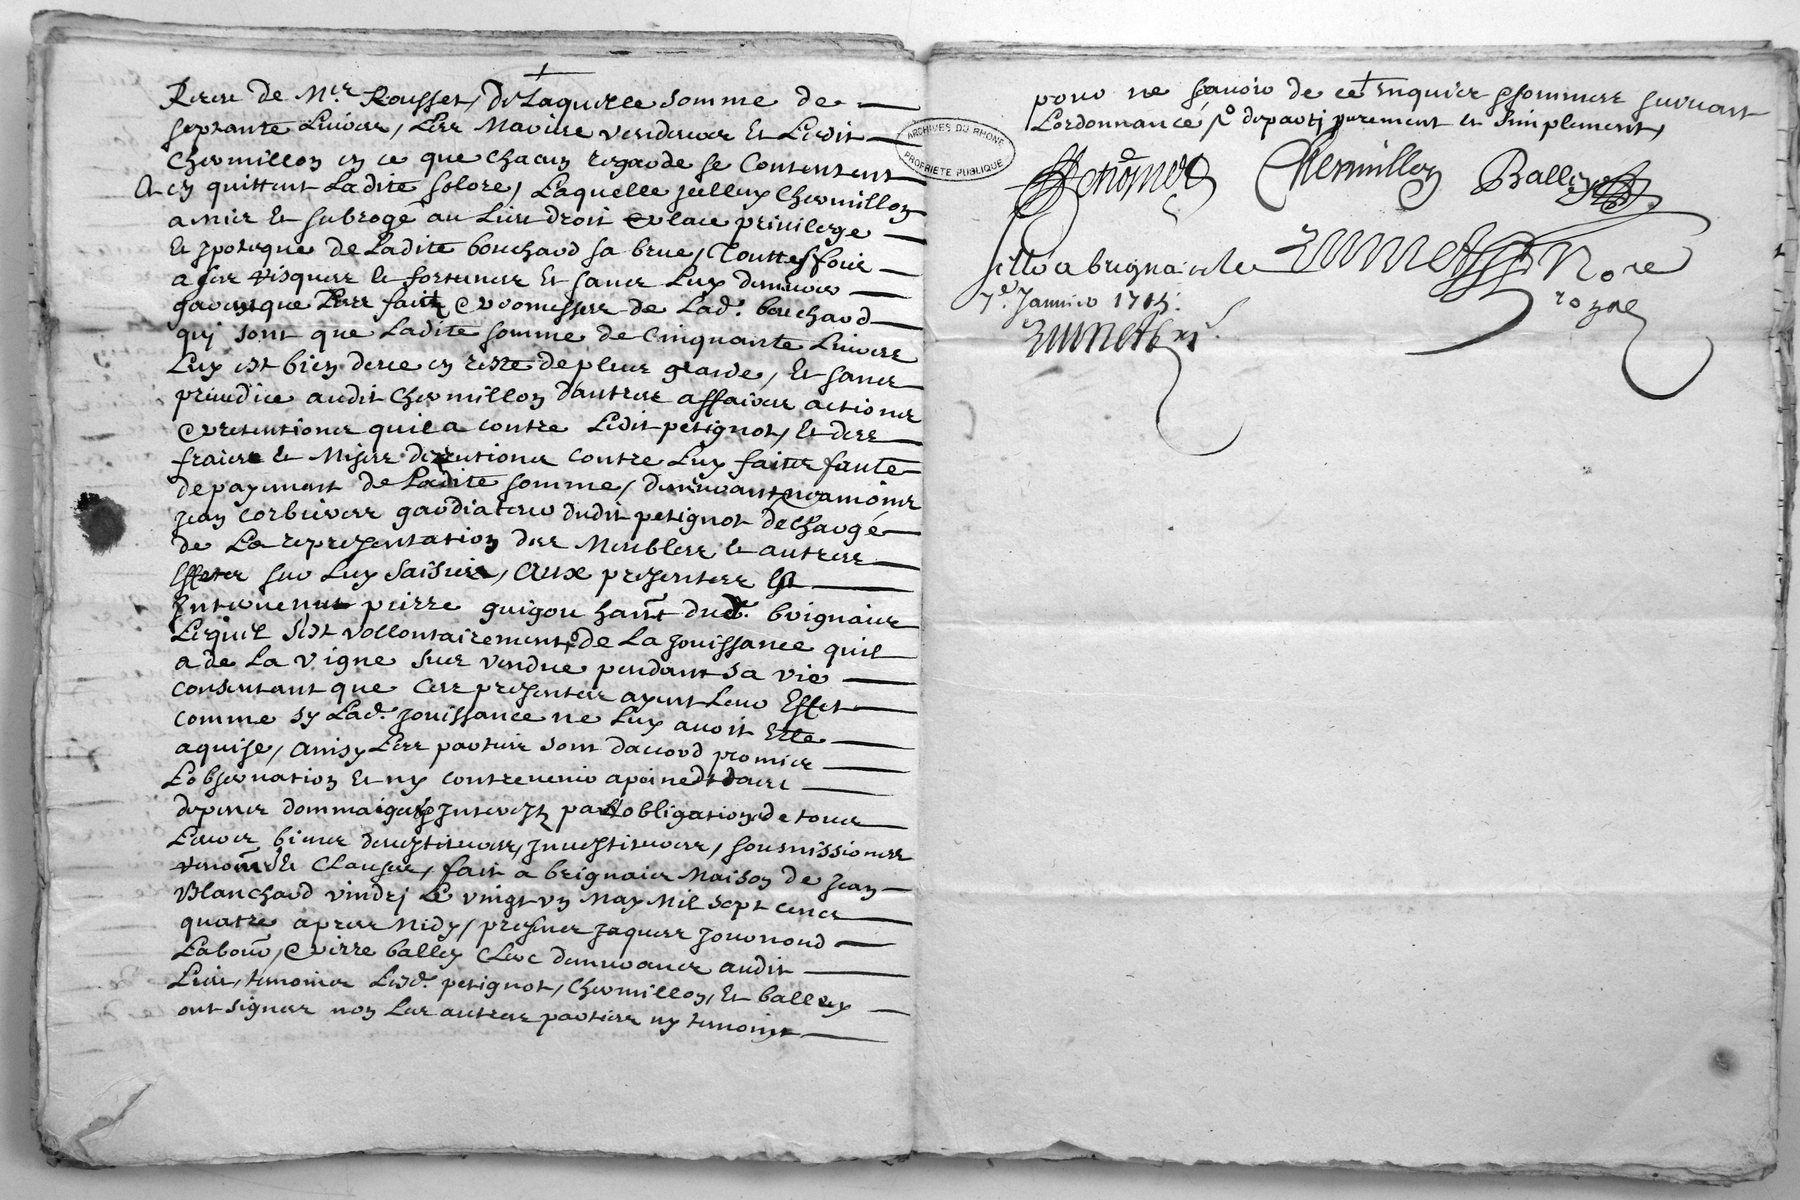 Rerre de Mer. Rousset, De Laquelle somme de
septante Livres, Les Maries vendeurs Et Ledit
Chermillon en ce que chacun regarde se Contentent
& en quittent Ladite folore, Laquelle Jcelluy Chermillon
a mis Et subrogé au Lieu droit place privilege
Et ypoteque de Ladite bouchard sa brue, Touttesfois
a ses risques et fortunes Et sans Luy demeurer
garent que Des faits & promesses de Lad. bouchard
qui sont que Ladite somme de Cinquante Livres
Luy est bien deue en reste de plus grande, Et sans
preiudice audit Chermillon d'autres affaires actions
& pretentions quil a contre Ledit petignot, Et des
fraix et Mises dexecutions contre Luy faites faute
de payement de Ladite somme, demeurant neamoins
Jean Corbieres gardiateur dudit petignot dechargé
de La representation des Meubles et autres
Effets sur Luy Saisies, Aux presentes Est
Intervenus pierre guigou hant. dud. brignais
Lequel s'est vollontairement de La jouissance quil
a de La vigne sus vendue pendant sa vie
consentant que Ces presentes ayent Leur Effet
comme sy Lad. jouissance ne Luy avoit Esté
aquise, Ainsy Les parties sont d'accord promis
L'observation Et ny contrevenir a peine de tous
depens dommaiges Interests par L'obligation de tous
Leurs biens devestitures, Jnvestitures, soumissions
renon. & Clauses, fait a brignais Maison de Jean
Blanchard vindrj Le vingt un May Mil sept cens
quatre apres Midy, presens Jaques Jouvnond
Labour, & pierre balley Clerc demeurans audit
Lieu, temoins Led. petignot, Chermillon, Et balley
ont signés non Les autres parties ny temoins
pour ne savoir de ce Enquis & sommes suivant
Lordonnance, & departj purement et simplement,
Chermillon Balley
Zumet Nore
royal
sello a brignais le
7e. Janvier 1715.
Zumet
ARCHIVES DU RHONE
PROPRIETE PUBLIQUE